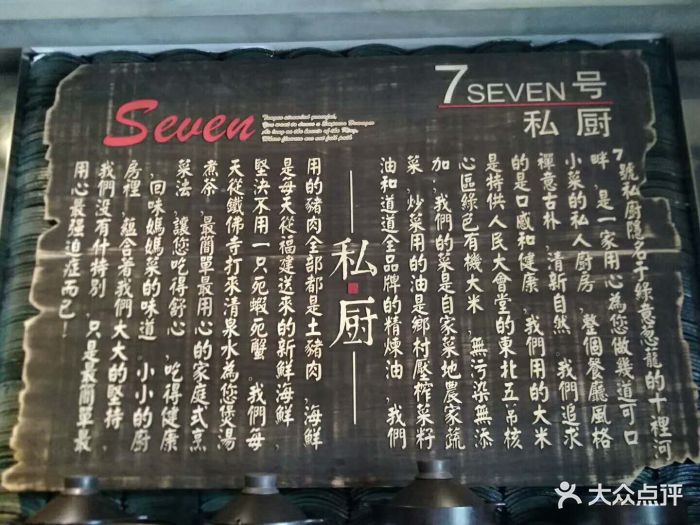 7 SEVEN 号
私厨
Seven
7號私廚隱名于綠意蔥蘢的十裡河
畔，是一家用心為您做幾道可口
小菜的私人厨房，整個餐廳風格
禪意古朴，清新自然。我們追求
的是口感和健康，我們用的大米
是特供人民大會堂的東北五吊核
心區綠色有機大米，無污染無添
加，我們的菜是自家菜地農家蔬
菜，炒菜用的油是鄉村壓榨菜籽
油和道道全品牌的精煉油，我們
私厨
用的豬肉全部都是土豬肉，海鮮
是每天從福建送來的新鮮海鮮，
堅決不用一只死蝦死蟹。我們每
天從鐵佛寺打來清泉水為您煲湯
煮茶，最簡單最用心的家庭式烹
菜法，讓您吃得舒心，吃得健康
，回味媽媽菜的味道。小小的厨
房裡，蘊含著我們大大的堅持，
我們沒有什特別，只是最簡單最
用心最强迫症而已！
大众点评